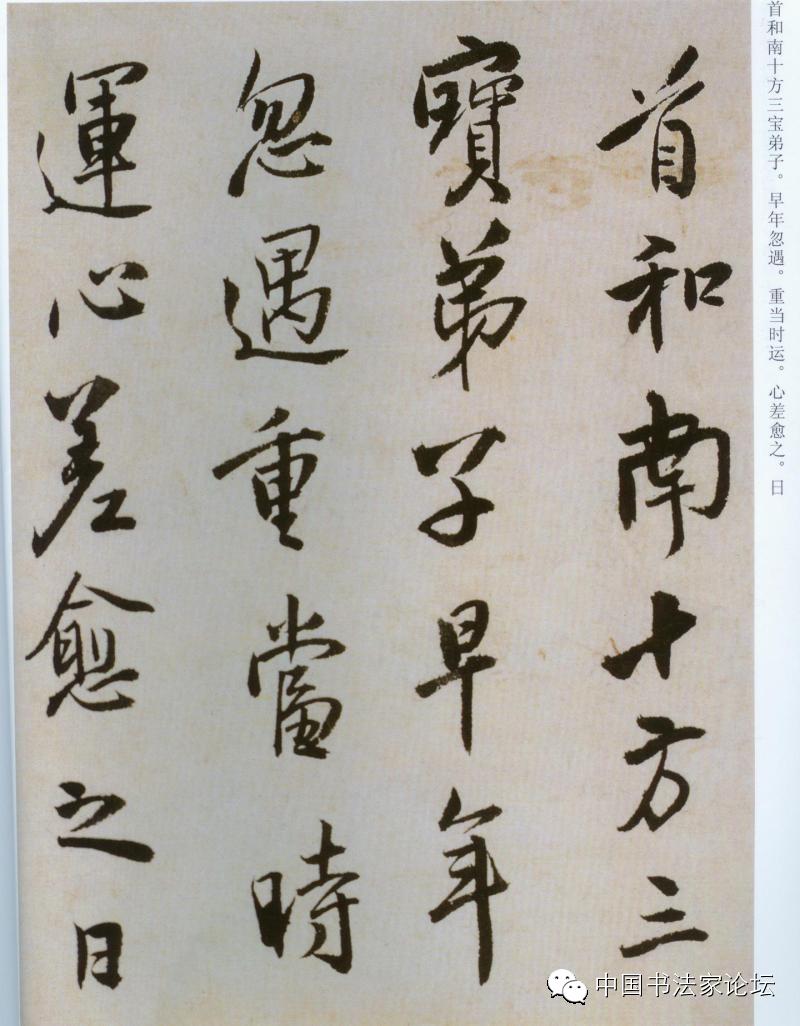 首和南十方三
寳弟子早年
忽遇重當時
運心差愈之日
首和南十方三宝弟子。早年忽遇。重当时运。心差愈之。日
中国书法家论坛